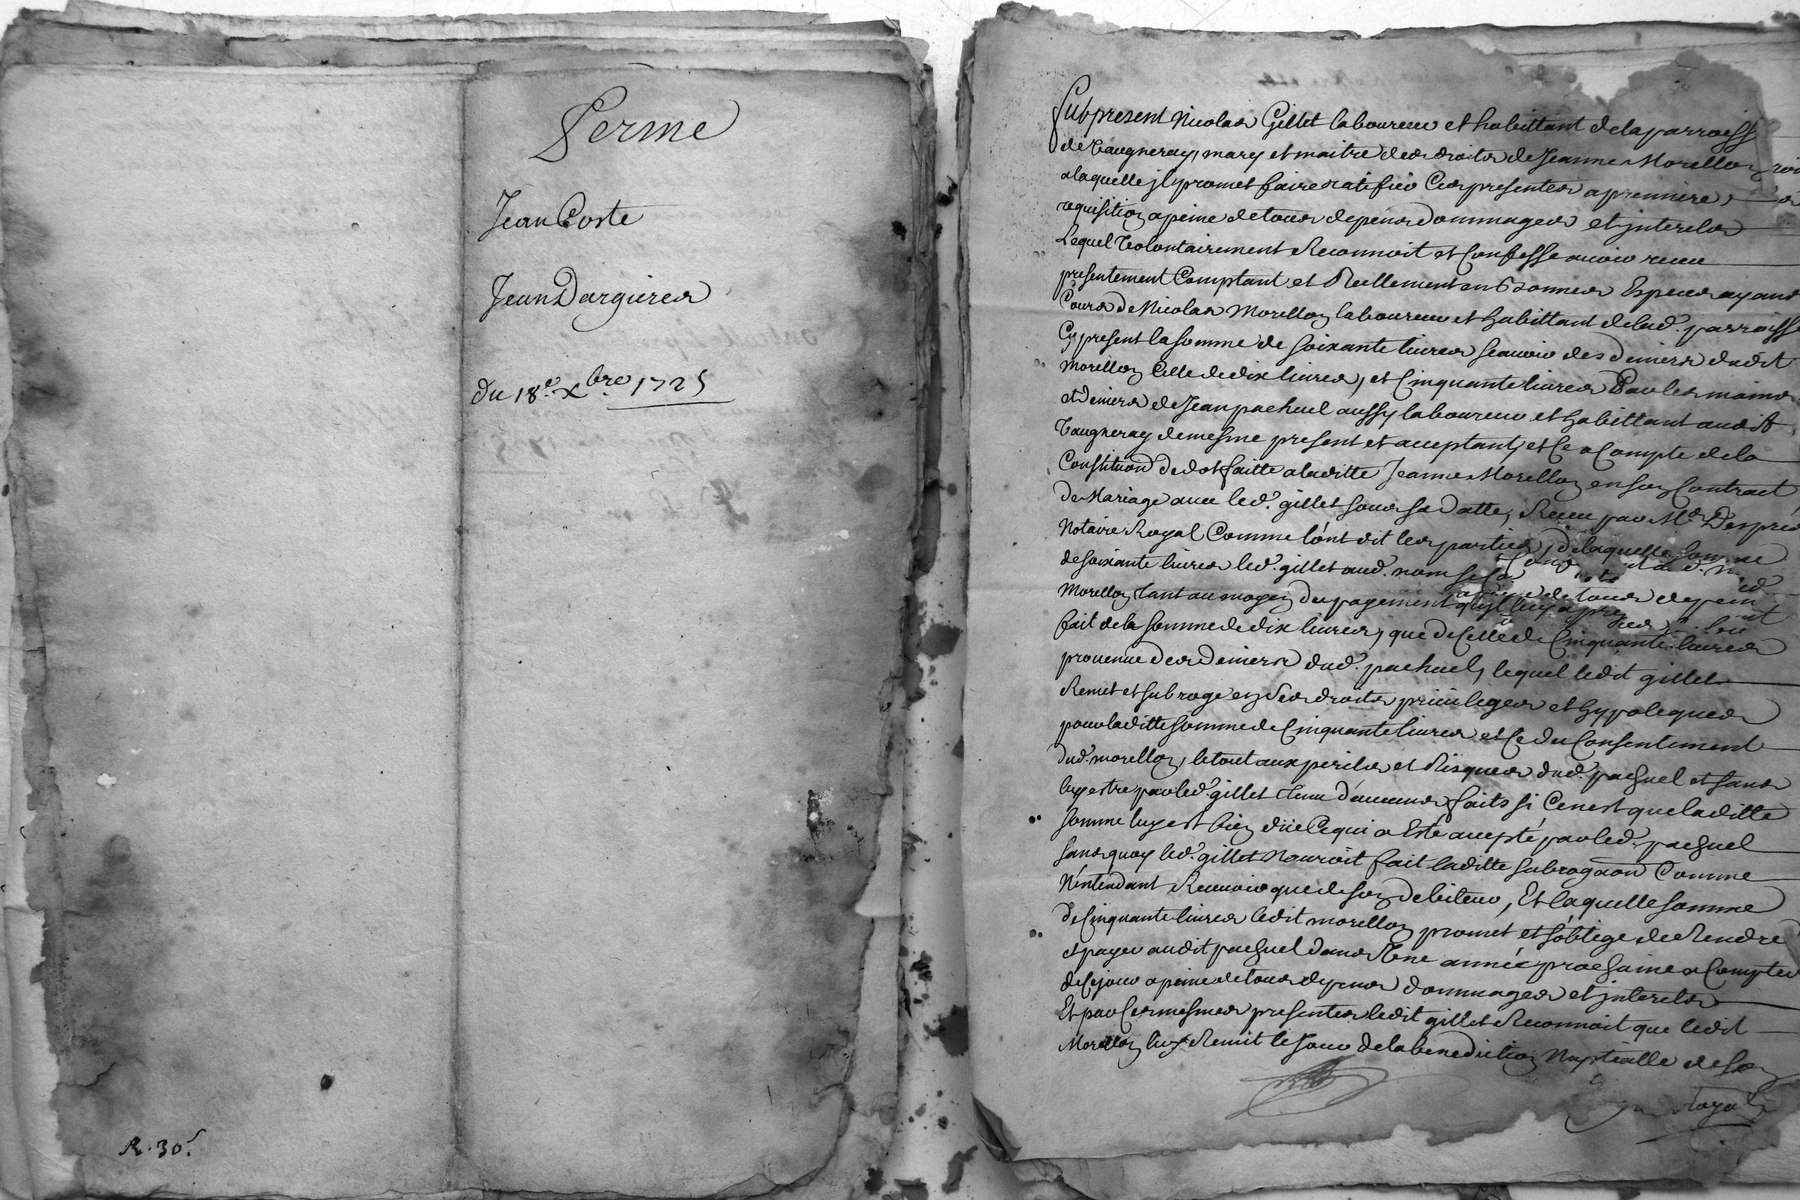 Ferme
Jean Coste
Jean Dargieres
du 18.e Xbre. 1725
R. 30.s
Fut present Nicolas Gillet laboureur et habittant de la parroiss
de Vaugneray, mary et maitre des droits de Jeanne Morellon
a laquelle jl promet faire ratifier Ces presentes a premiere
requisition a peine de tous depens dommages et jnterets
Lequel Volontairement Reconnoit et Confesse auoir receu
presentement Comptant et Reellement en bonnes Especes ayant
Cours de Nicolas Morellon laboureur et habittant de lad. parroisse
Cy present la somme de soixante liures scauoir des deniers dudit
Morellon Celle de dix liures, et Cinquante liures Par les mains
et deniers de Jean pachuel aussy laboureur et habittant audit
Vaugneray de mesme present et acceptant, et Ce a Compte de la
Constitu͠on de dot faitte a laditte Jeanne Morellon en son Contract
de Mariage auec led. gillet sous sa datte, Receu par Me Desprès
Notaire Royal Comme l'ont dit les parties, de laquelle somme
de soixante liures led. gillet aud. nom se
Morellon tant au moyen du payement qu'il luy a
fait de la somme de dix liures, que de Celle de Cinquante liures
prouenue des deniers dud. pachuel, lequel ledit gillet
Remet et subroge en ses droits priuileges et hypoteques
pour laditte somme de Cinquante liures et Ce du Consentement
dud. morellon, le tout aux perils et Risques dud. pachuel et sans
luy estre par led. gillet tenu d'aucuns faits si Ce n'est que laditte
somme luy est bien düe Ce qui a Esté accepté par led. pachuel
sans quoy led. gillet N'auroit fait laditte subroga͠on Comme
N'entendant Receuoir que de son debiteur, Et laquelle somme
de Cinquante liures ledit morellon promet et s'oblige de Rendre
et payer audit pachuel dans Vne année prochaine a Compter
de Ce jour a peine de tous depens dommages et jnterets
Et par Ces mesmes presentes ledit gillet Reconnoit que ledit
Morellon luy Remit le Jour de la benediction Nuptialle de son
Royal